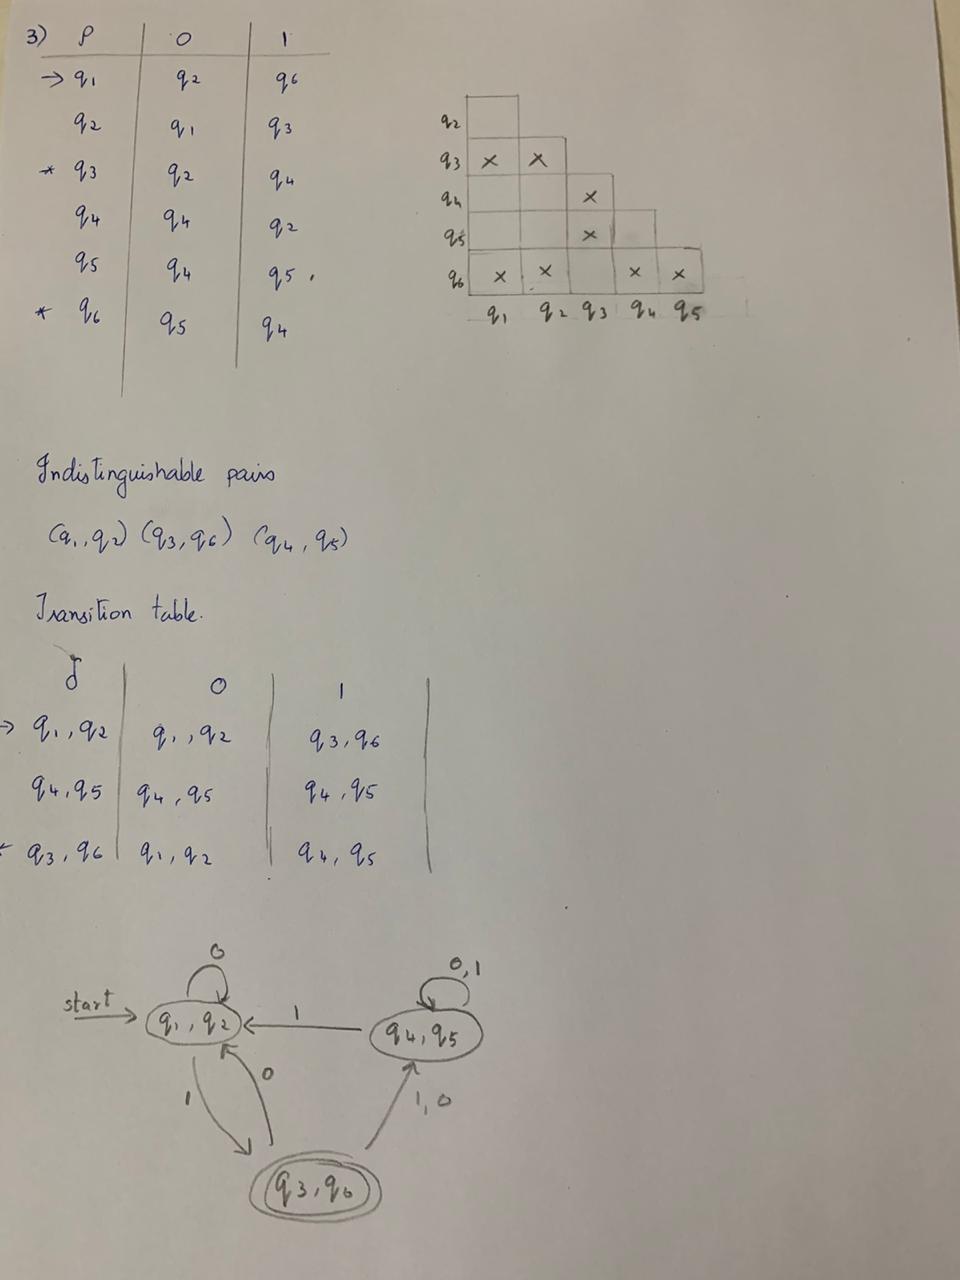 3) δ 0 1
→ q1 q2 q6
q2 q1 q3
* q3 q2 q4
q4 q4 q2
q5 q4 q5 .
* q6 q5 q4
q2
q3 × ×
q4 ×
q5 ×
q6 × × × ×
q1 q2 q3 q4 q5
Indistinguishable pairs
(q1, q2) (q3, q6) (q4, q5)
Transition table.
δ 0 1
→ q1, q2 q1, q2 q3, q6
q4, q5 q4, q5 q4, q5
q3, q6 q1, q2 q4, q5
0 0,1
start q1, q2 1 q4, q5
1 0 1, 0
q3, q6